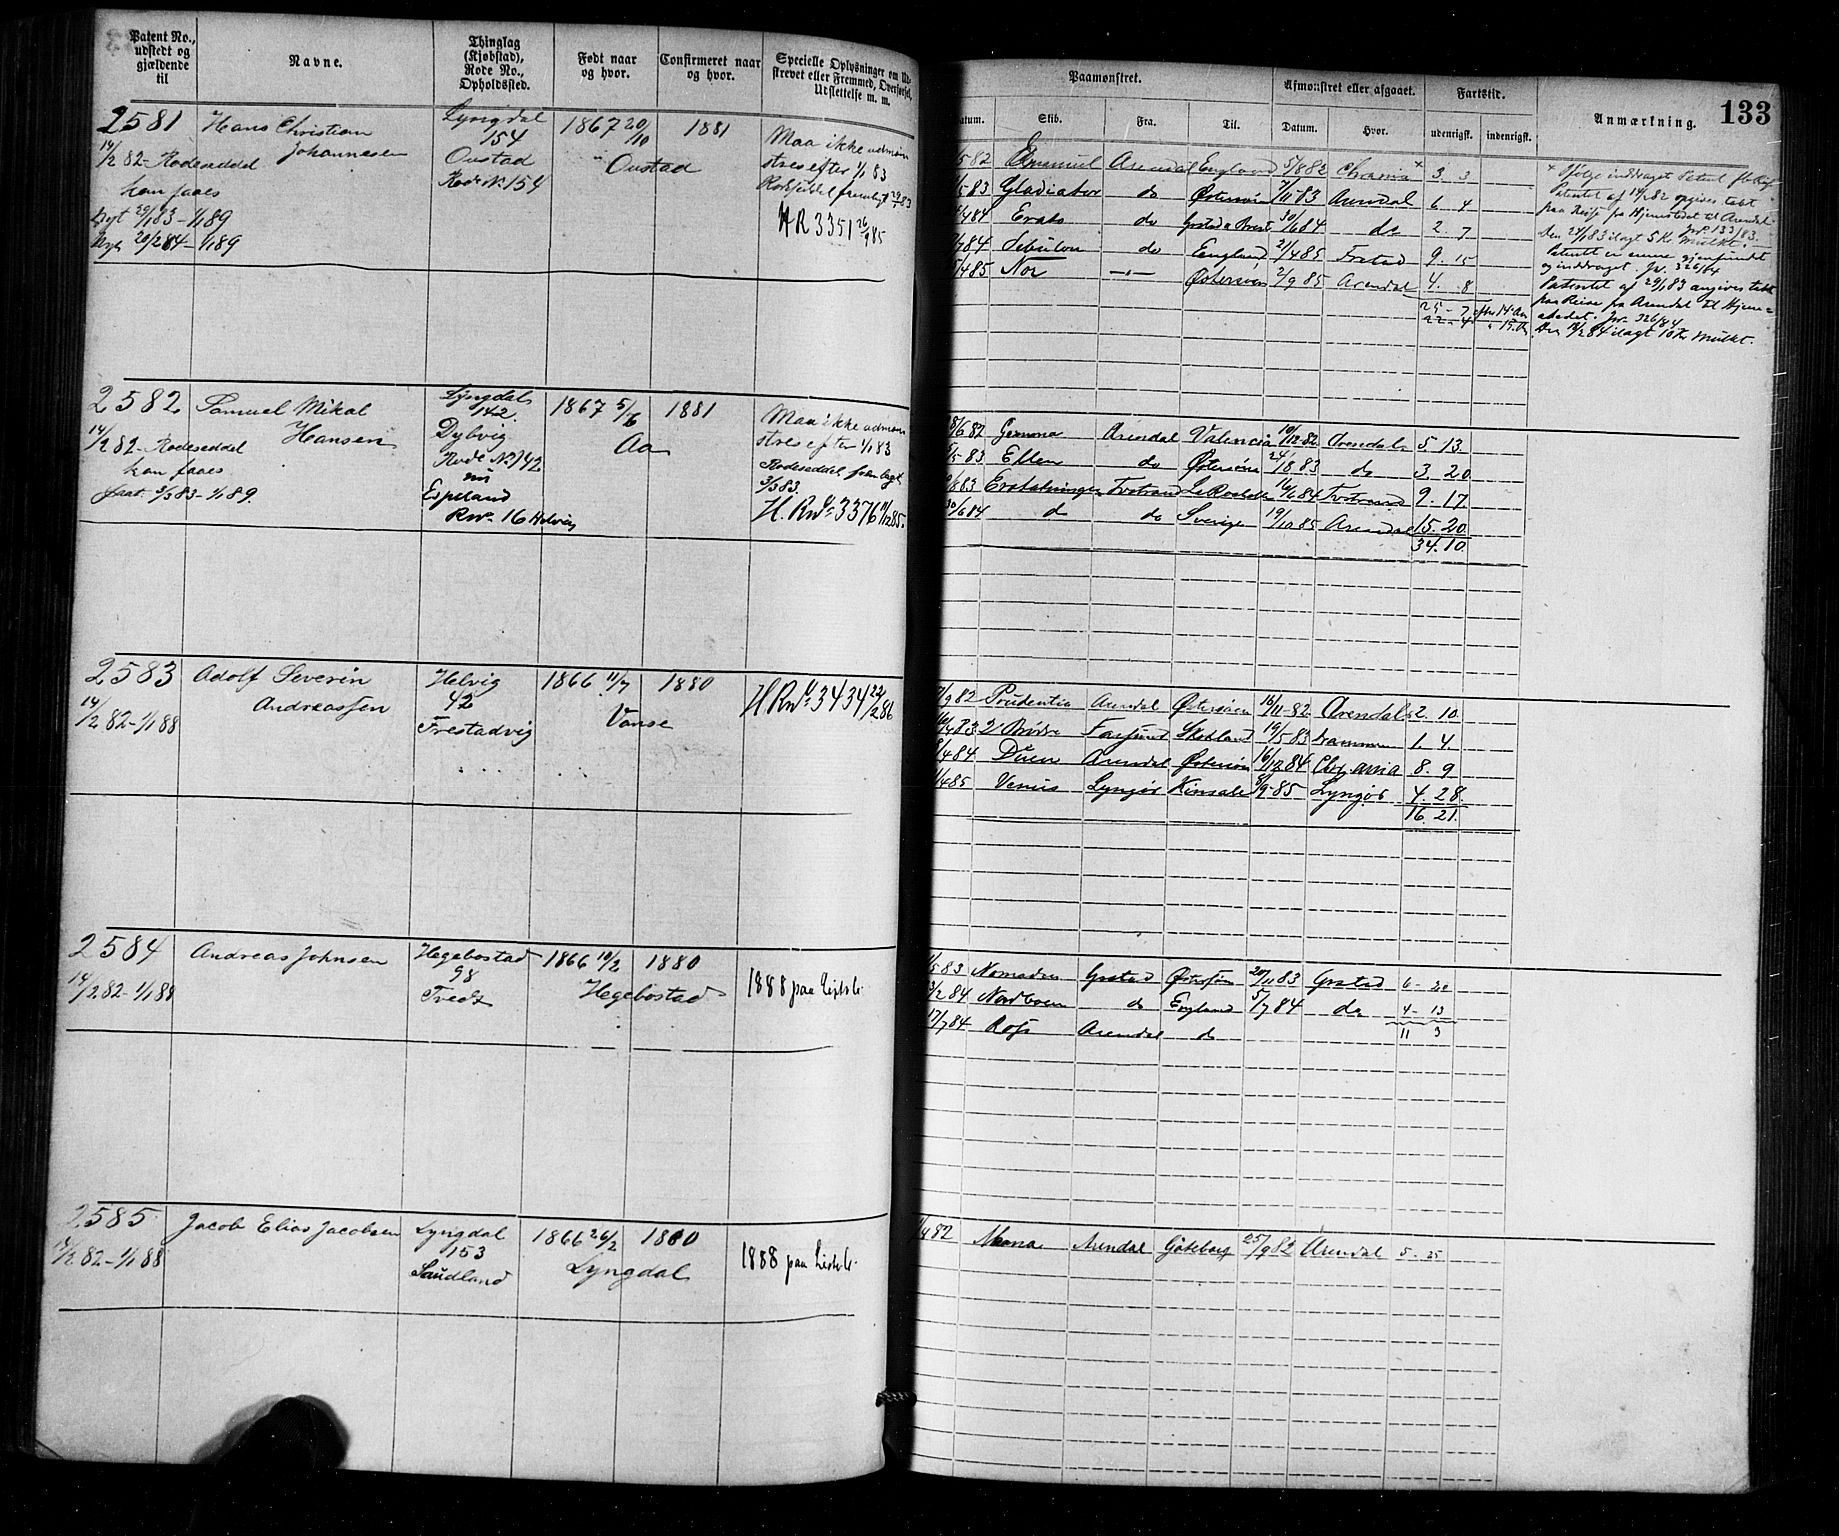 Patent No., udstedt og gjældende til
Navne.
Thinglag (Kjøbstad), Rode No., Opholdssted.
Født naar og hvor.
Confirmeret naar og hvor.
Specielle Oplysninger om Ud-
strevet eller Fremmed, Overførsel,
Udslettelse m. m.
Paamønstret.
Afmønstret eller afgaaet.
Fartstid.
Anmærkning.
133
atum.
Skib.
Fra.
Til.
Datum.
Hvor.
udenrigsk.
indenrigsk.
2581
Hans Christian
Johannesen
14/2 82 - Rodeseddel
kan faaes
Nyt 29/1 83 - 1/1 89
Nyt 20/2 84 - 1/1 89
Lyngdal
154
Oustad
Rode No 154
1867 20/10
Oustad
1881
Maa ikke udmøn
stres efter 1/1 83
HR 3351 26/9 85
/5 82 Emanuel Arendal England 5/8 82 Chrania × 3 3
/5 83 Gladiator do Østersøen 7/11 83 Arendal 6 4
/4 84 Erato do Grstad n Brest 30/6 84 do 2. 7
/7 84 do England 2/4 85 Frstad 9. 15
5/4 85 Nor — " — Østersøen 2/9 85 Arendal 4. 8
25 - 7
22 - 4
Patentet af 14/2 82 opgives tabt
paa Reise fra Hjemstedet til Arendal
Den 29/1 83 ilagt 5 Kr. Mulkt.
Jr. 133/83.
Patentet er senere gjenfundet
og inddraget. Jr. 326/84
Patentet af 29/1 83 angives tabt
paa Reise fra Arendal til Hjem-
stedet. Jr. 326/84
Den 14/2 84 ilagt 10 Kr Mulkt.
2582
Samuel Mikal
Hansen
14/2 82 - Rodeseddel
kan faaes
faat 3/5 83 - 1/1 89.
Lyngdal
142
Dybvig
Rode No 142
nu
Espeland
Rno 16 Helvig
1867 5/6
Aa
1881
Maa ikke udmøn
stres efter 1/1 83
Rodeseddel fremlagt
3/5 83.
H. Rno 3376 11/12 85.
8/6 82 Gemma Arendal Valencia 10/12 82 Arendal 5. 13.
/5 83 Ellen do Østersøen 24/8 83 do 3. 20
/8 83 Erstatningen Tvstrand La Rochelle 16/6 84 Tvstrand 9. 17.
30/6 84 do do Sverige 19/10 85 Arendal 15. 20.
34. 10.
2583
Adolf Severin
Andreassen
14/2 82 - 1/1 88
Helvig
42
Frestadvig
1866 11/7
Vanse
1880
H Rno 3434 22/2 86
/9 82 Prudentia Arendal Østersøen 16/11 82 Arendal 2. 10.
/4 83 2 Brødre Farsund Skotland 19/5 83 Drammen 1. 4.
/4 84 Duen Arendal Østersøen 16/12 84 Chrania 8. 9
1/4 85 Venus Lyngør Kinsale 8/9 85 Lyngør 4. 28.
16. 21.
2584
Andreas Johnsen
14/2 82 - 1/1 88
Hegebostad
98
Tvedt
1866 10/2
Hegebostad
1880
1888 paa Listb.
/5 83 Nomaden Grstad Østersøen 20/11 83 Grstad 6 - 20
3/2 84 Nordboen do England 5/7 84 do 4 - 13
11 3
17/7 84 Ross Arendal do
2585
Jacob Elias Jacobsen
14/2 82 - 1/1 88
Lyngdal
153
Saudland
1866 26/2
Lyngdal
1880
1888 paa Listb.
/4 82 Mona Arendal Göteborg 25/9 82 Arendal 5 - 25